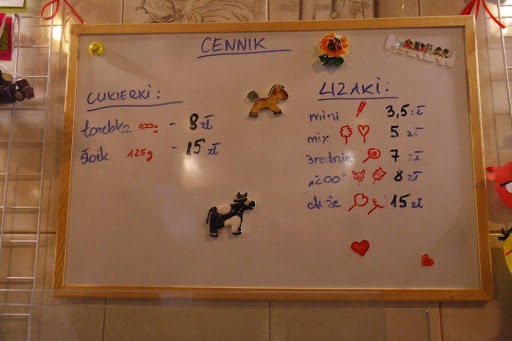 CENNIK
CUKIERKI:
torebka 100g - 8 zł
słoik 125g - 15 zł
LIZAKI:
mini 3,5 zł
mix 5 zł
średnie 7 zł
„ZOO" 8 zł
duże 15 zł